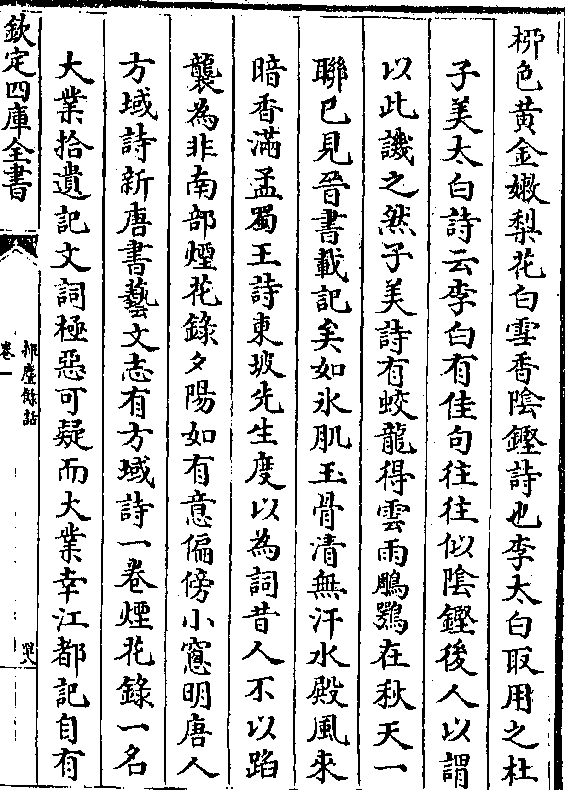 栁色黄金嫩梨花白雪香隂鏗詩也李太白取用之杜
子美太白詩云李白有佳句往往似隂鏗後人以謂
以此譏之然子美詩有蛟龍得雲雨鵰鶚在秋天一
聯已見晉書載記矣如氷肌玉骨清無汗水殿風來
暗香滿孟蜀王詩東坡先生度以為詞昔人不以蹈
襲為非南部煙花錄夕陽如有意偏傍小窻明唐人
方域詩新唐書藝文志有方域詩一卷煙花錄一名
大業拾遺記文詞極惡可疑而大業幸江都記自有
欽定四庫全書
揮麈餘話
卷一